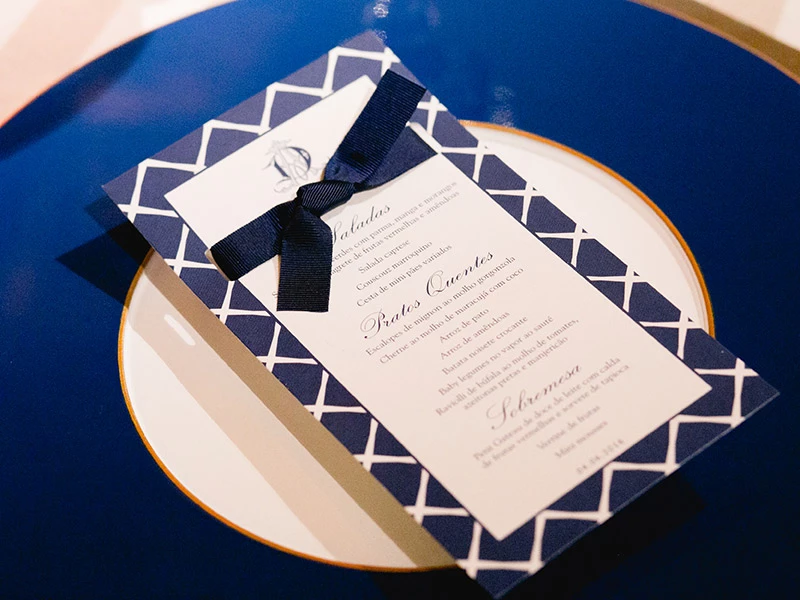 Saladas
verdes com parma, manga e morangos
vinagrete de frutas vermelhas e amêndoas
Salada caprese
Couscuz marroquino
Cesta de mini pães variados
Pratos Quentes
Escalopes de mignon ao molho gorgonzola
Cherne ao molho de maracujá com coco
Arroz de pato
Arroz de amêndoas
Batata noisete crocante
Baby legumes no vapor ao santê
Ravioli de búfala ao molho de tomates,
azeitonas pretas e manjericão
Sobremesa
Petit Gateau de doce de leite com calda
de frutas vermelhas e sorvete de tapioca
Verrine de frutas
Mini